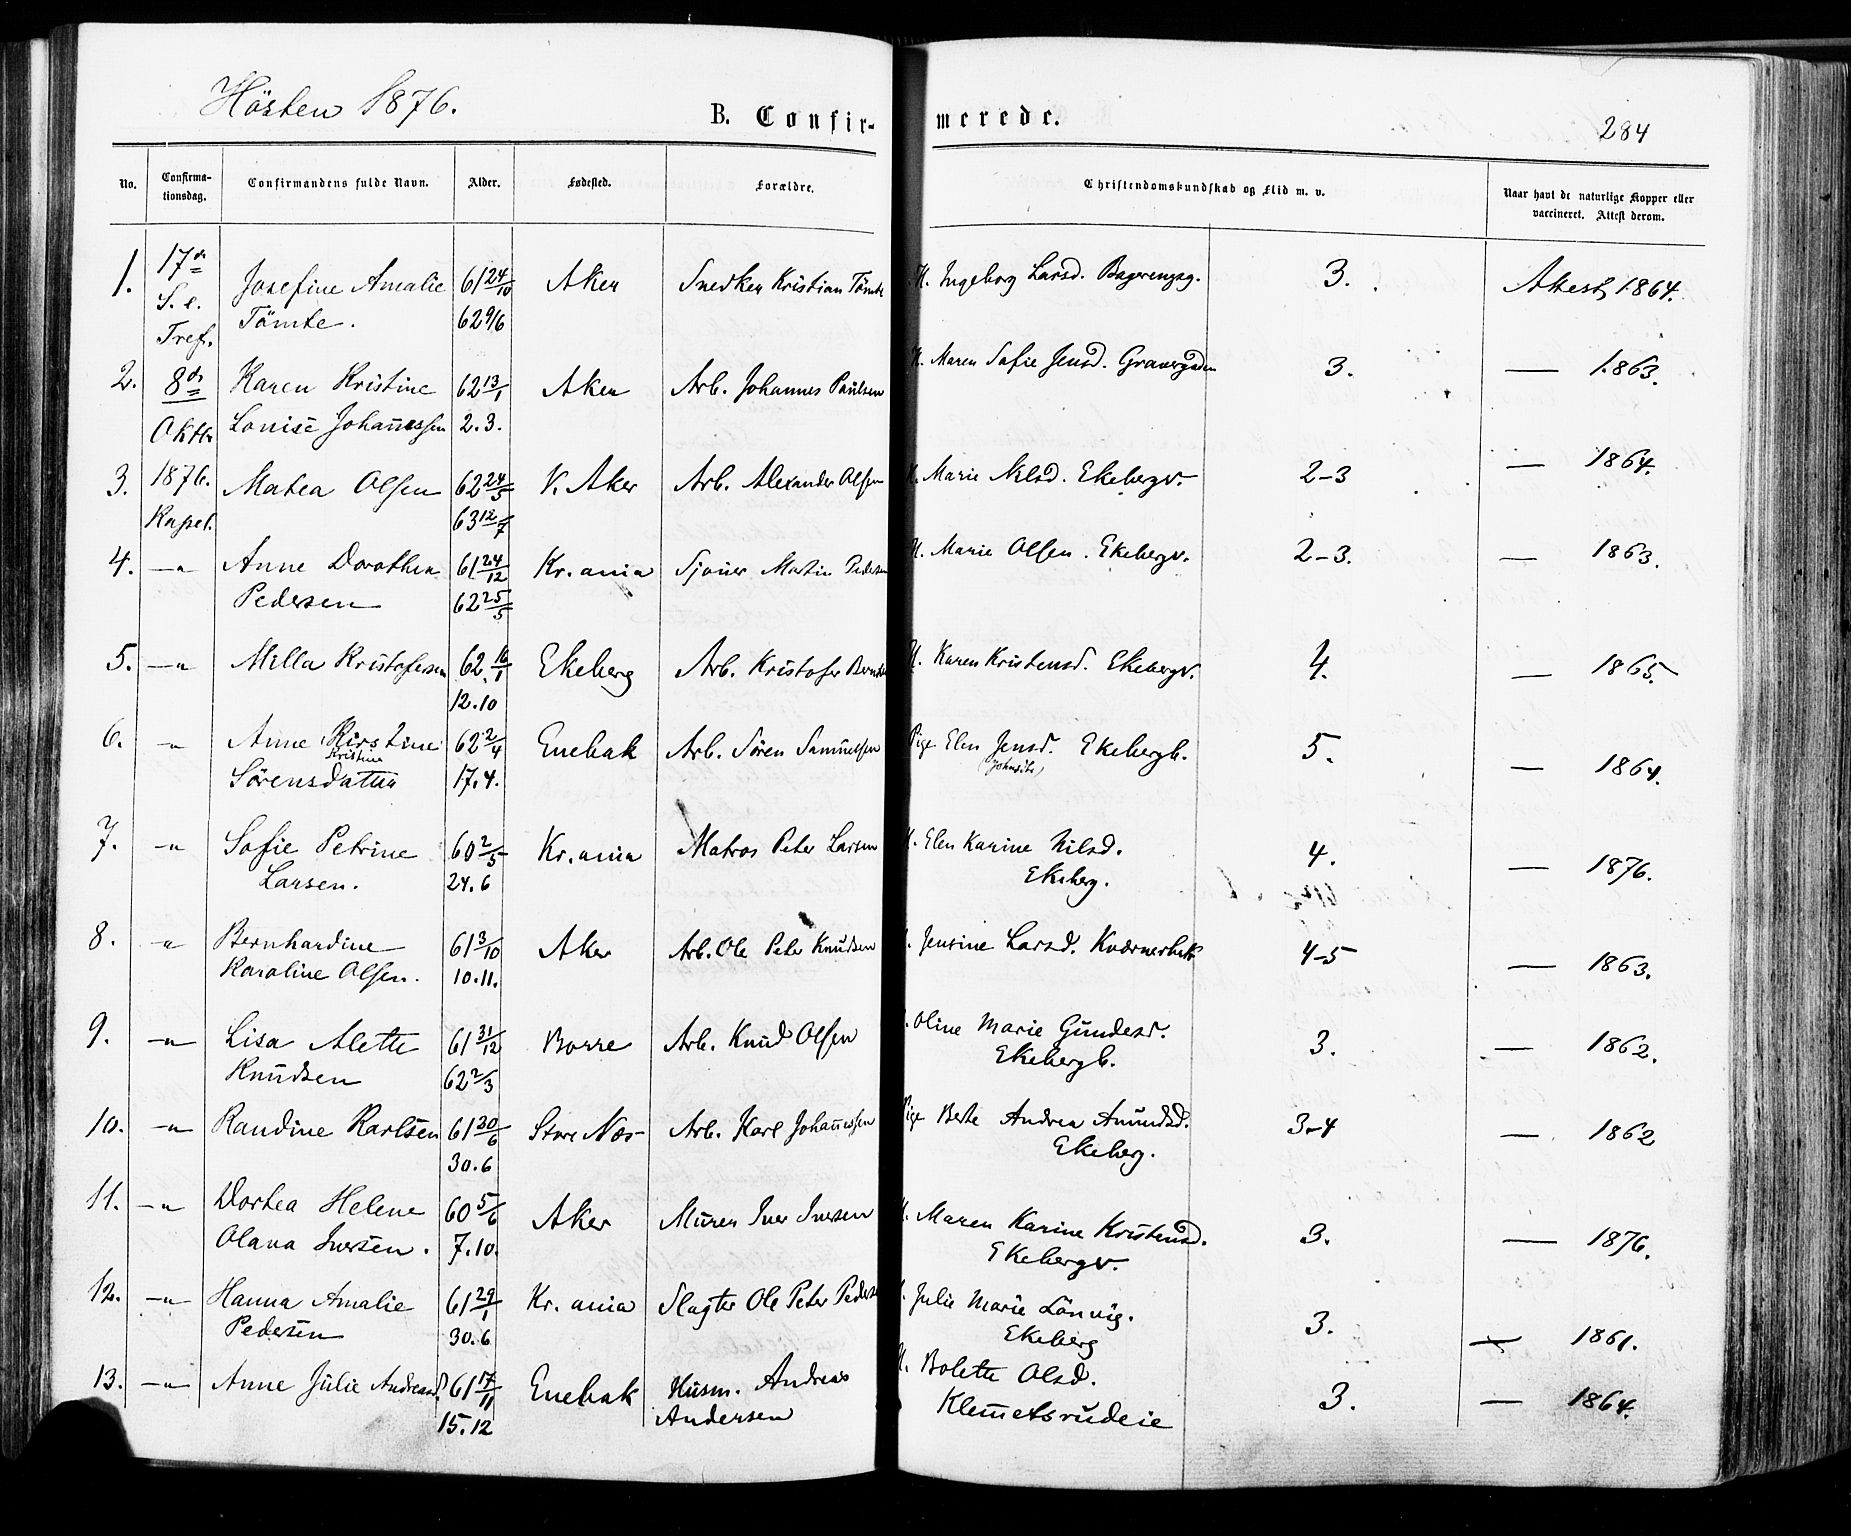 Hösten 1876.
B. Confir- merede.
284
No. Confirma- tionsdag. Confirmandens fulde Navn. Alder. Fødested. Forældre. Christendomskundskab og Flid m. v. Naar havt de naturlige Kopper eller vaccineret. Attest derom.
1. 17de Josefine Amalie 61 24/10 Aker Snedker Kristian Tömte H. Ingeborg Larsd. 3. Attest, 1864.
S. e. Tömte. 62 9/6
Tref.
2. 8de Karen Kristine 62 13/1 Aker Arb. Johannes Paulsen H. Maren Sofie Jensd. 3. — 1863.
Oktbr Louise Johannessen 2.3.
3. 1876. Matea Olsen 62 24/5 V. Aker Arb. Alexander Olsen H. Marie Nilsd. Ekebergv. 2-3 — 1864.
Kapel. 63 12/7
4. —"— Anne Dorothea 61 24/12 Kr.ania Sjouer Martin Pedersen H. Marie Olsen. Ekebergv. 2-3. — 1863.
Pedersen 62 25/5
5. —"— Milla Kristofersen 62. 16/1 Ekeberg Arb. Kristofer H. Karen Kristensd. Ekebergv. 4. — 1865.
12.10
6. —"— Anne Kirstine 62 2/4 Enebak Arb. Sören Samuelsen Pige Elen Jensd. Ekebergb. 5. — 1864.
Kristine
Sörensdatter 17.4.
7. —"— Sofie Petrine 60 2/5 Kr.ania Matros Peter Larsen H. Elen Karine Nilsd. 4. — 1876.
Larsen. 24.6 Ekeberg.
8. —"— Bernhardine 61 3/10 Aker Arb. Ole Peter Knudsen H. Jensine Larsd. 4-5 — 1863.
Karoline Olsen. 10.11.
9. —"— Lisa Alette 61 31/12 Borre Arb. Knud Olsen H. Oline Marie Gundesd. 3. — 1862.
Knudsen 62 2/3 Ekebergb.
10. —"— Randine Karlsen 61 30/6 Store Næs Arb. Karl Johannessen Pige Berte Andrea Amundsd. 3-4 — 1862
30.6 Ekeberg.
11. —"— Dortea Helene 60 5/6 Aker Murer Iver Iversen H. Maren Karine Kristensd. 3. — 1876.
Olava Iversen. 7.10. Ekebergv.
12. —"— Hanna Amalie 61 29/1 Kr.ania Slagter Ole Peter Pedersen H. Julie Marie Lönvig. 3. — 1861.
Pedersen 30.6 Ekeberg
13. —"— Anne Julie Andreasd. 61 17/11 Enebak Husm. Andreas H. Bolette Olsd. 3. — 1864.
15.12 Andersen Klemetsrudeie